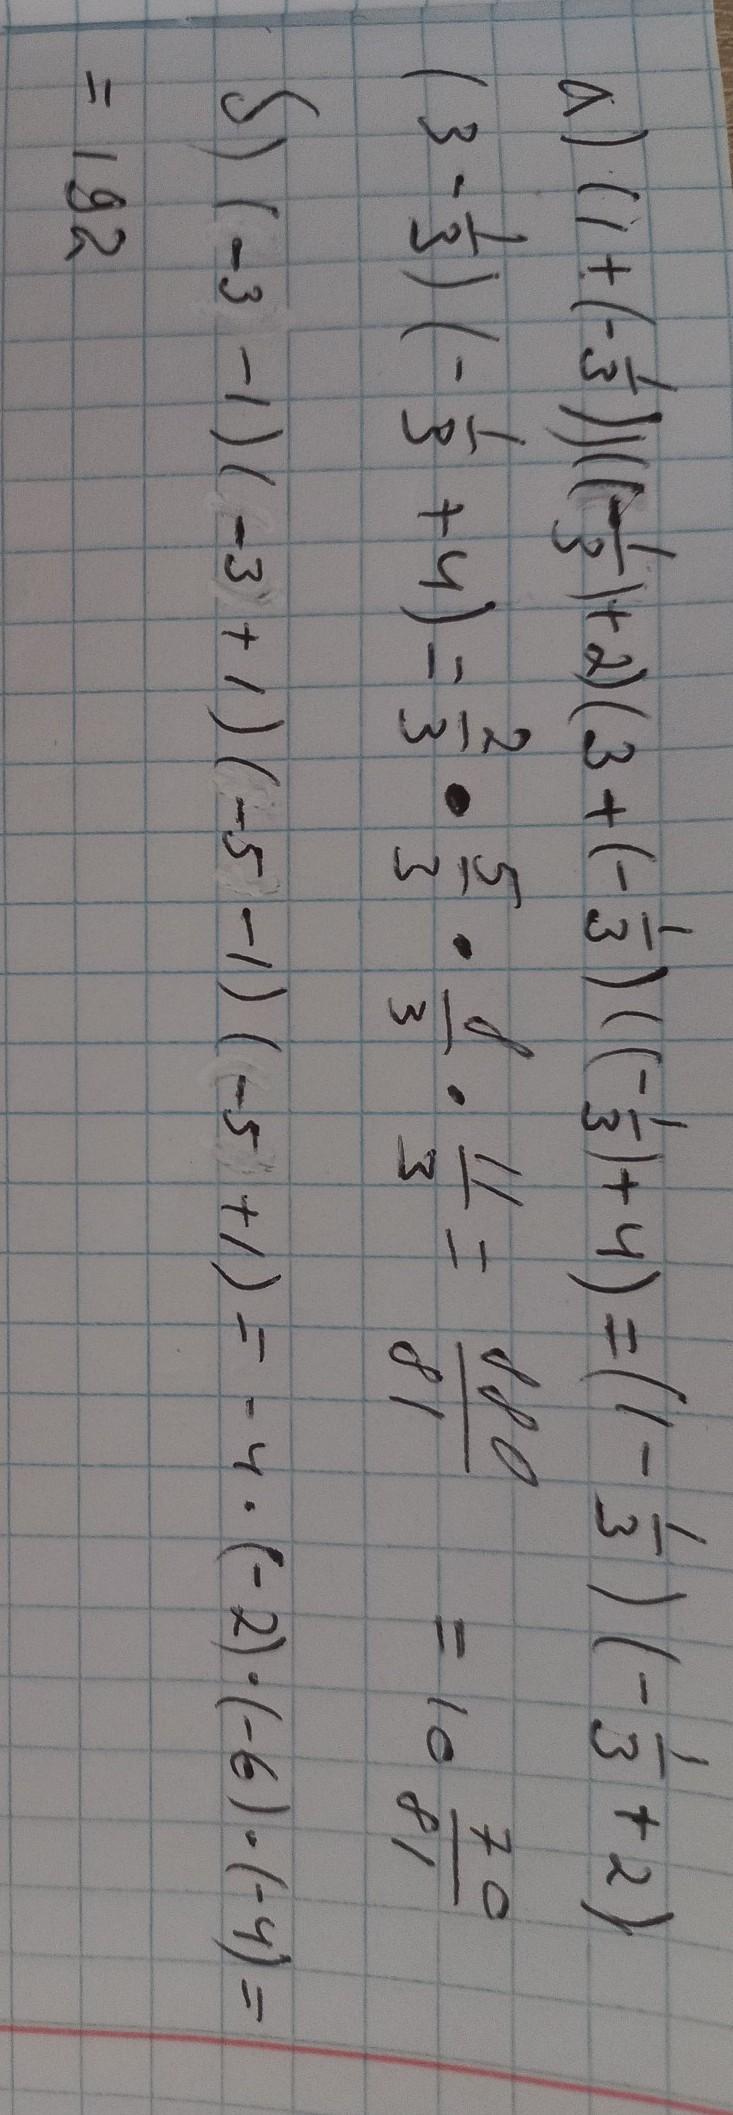 а) (1 + (-1/3))((-1/3) + 2)(3 + (-1/3)((-1/3) + 4) = (1 - 1/3)(-1/3 + 2)
(3 - 1/3)(-1/3 + 4) = 2/3 • 5/3 • 8/3 • 11/3 = 880/81 = 10 70/81
б) (-3 - 1)(-3 + 1)(-5 - 1)(-5 + 1) = -4 · (-2) · (-6) · (-4) =
= 192